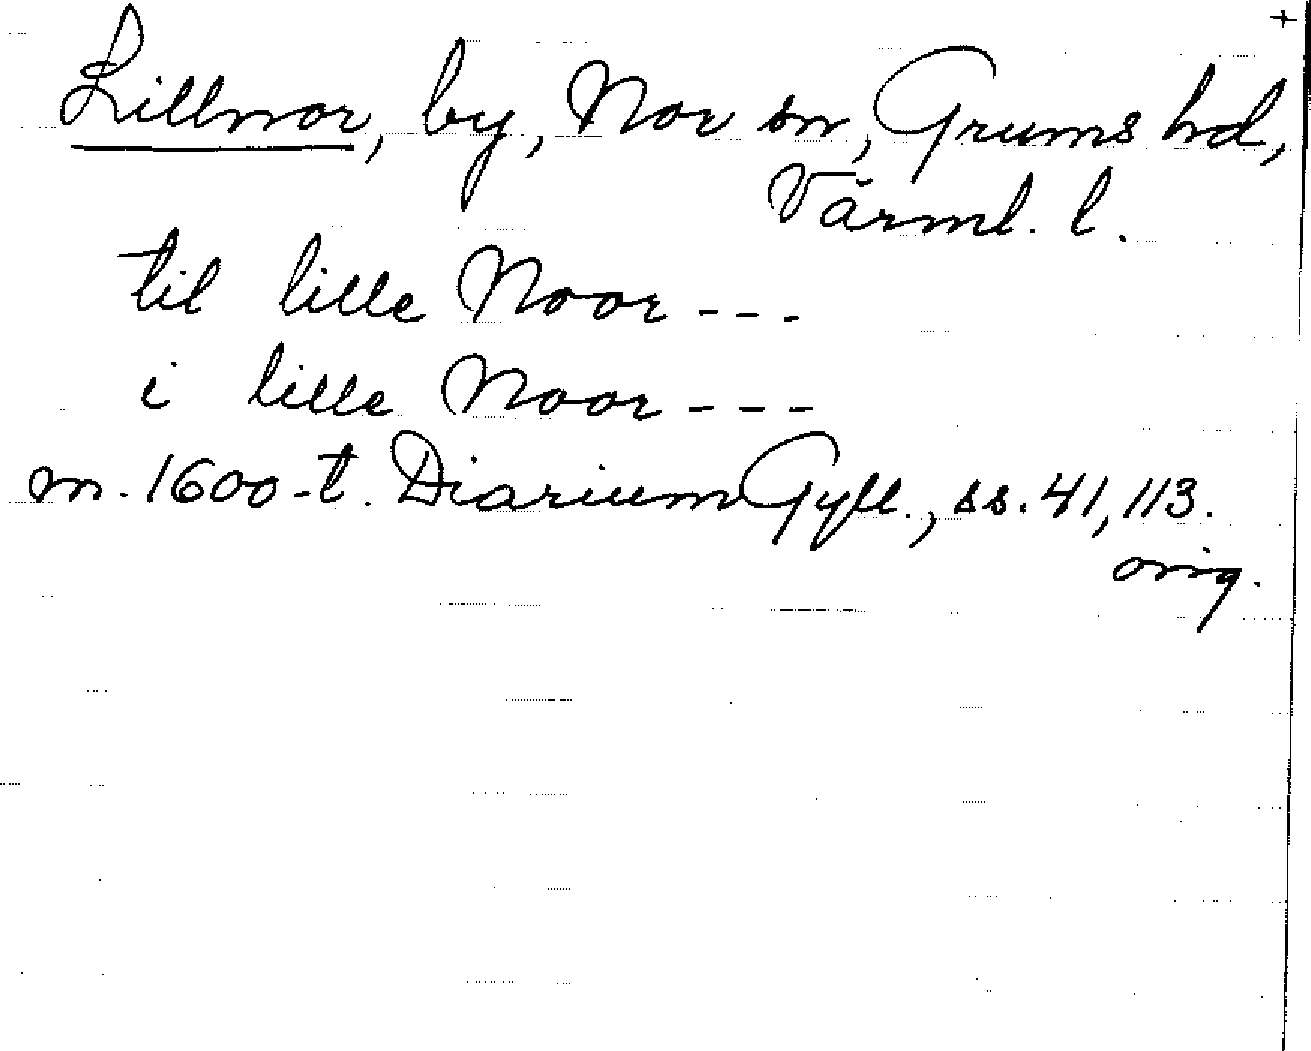 +
Lillnor, by, Nor sn, Grums hd,
Värml. l.
til lille Noor - - -
i lille Noor - - -
m. 1600-t. Diarium Gyll., ss. 41, 113.
orig.